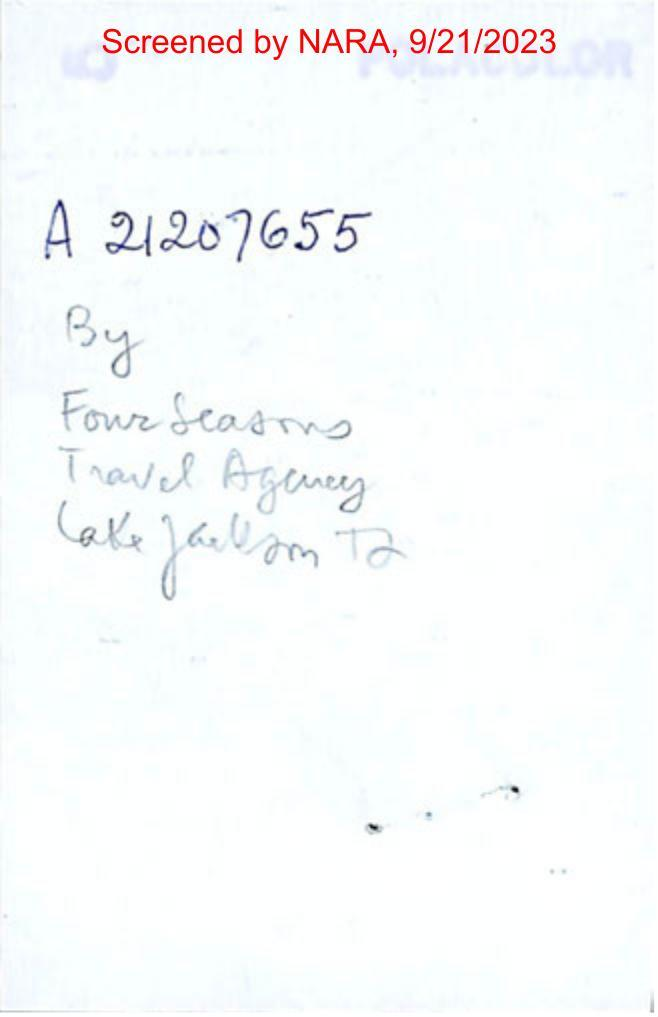 Screened by NARA, 9/21/2023
POLACOLOR
A 21207655
By
Four Seasons
Travel Agency
Lake Jackson Tx